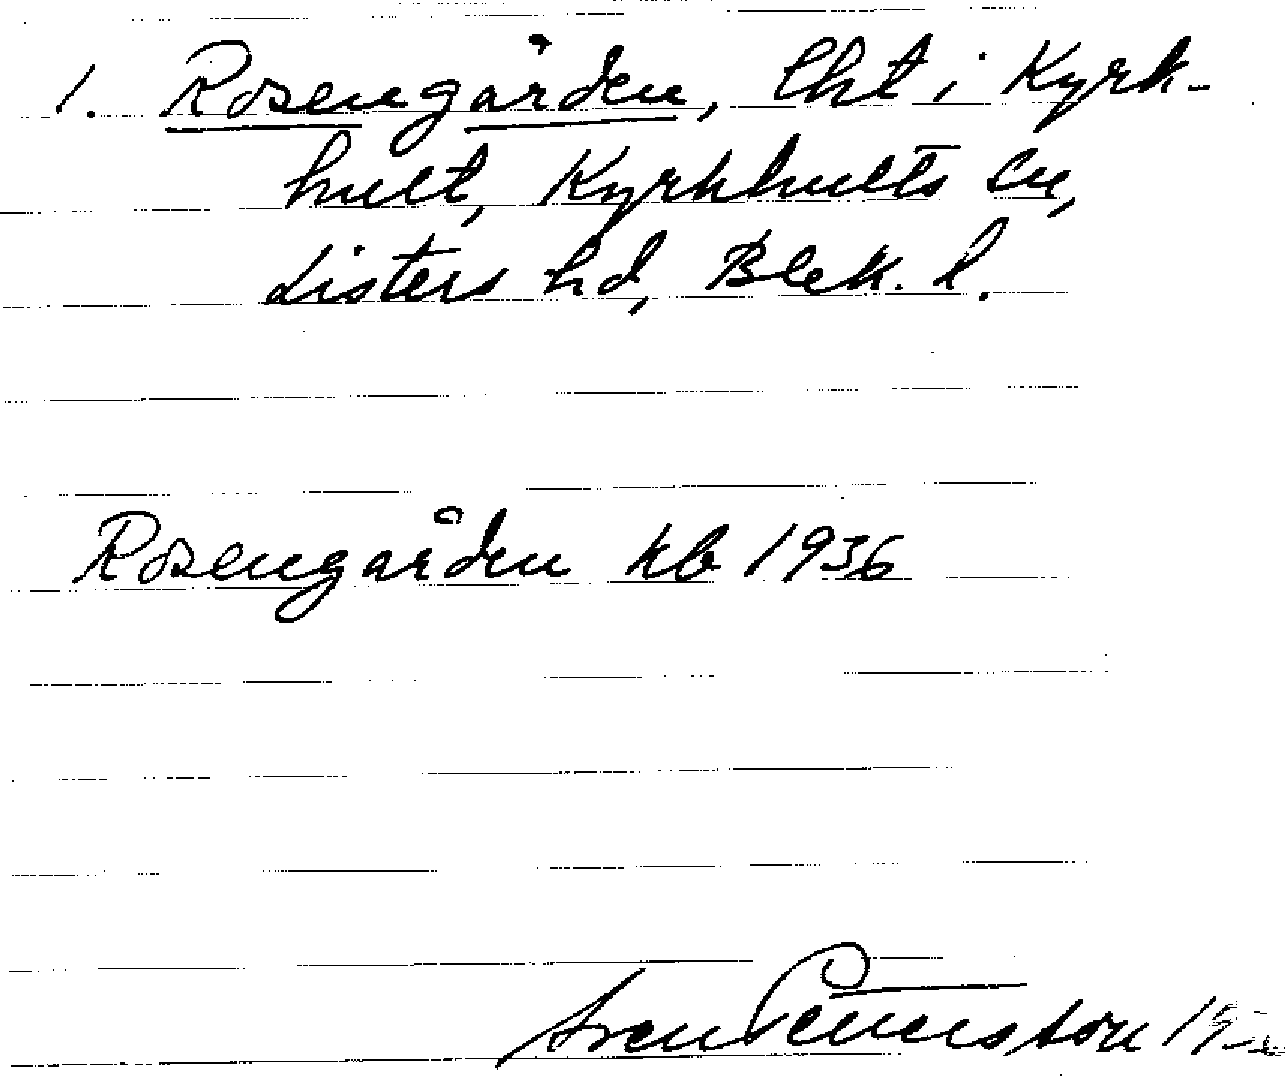 1. Rosengården, lht i Kyrk-
hult, Kyrkhults sn,
Listers hd, Blek. l.
Rosengården kb 1936
Sven Peterson